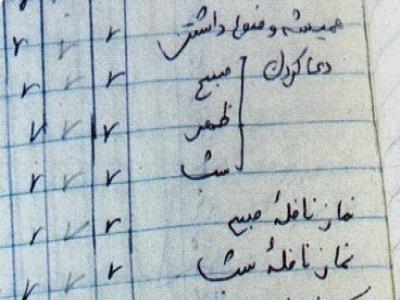 همیشه وضو داشتن ۲ ۲ ۲
دعا کردن
صبح ۲ ۲ ۲
ظهر ۲ ۲ ۲
شب ۲ ۲ ۲
نماز نافلهٔ صبح ۲ ۲ ۲
نماز نافلهٔ شب ۲ ۲ ۲